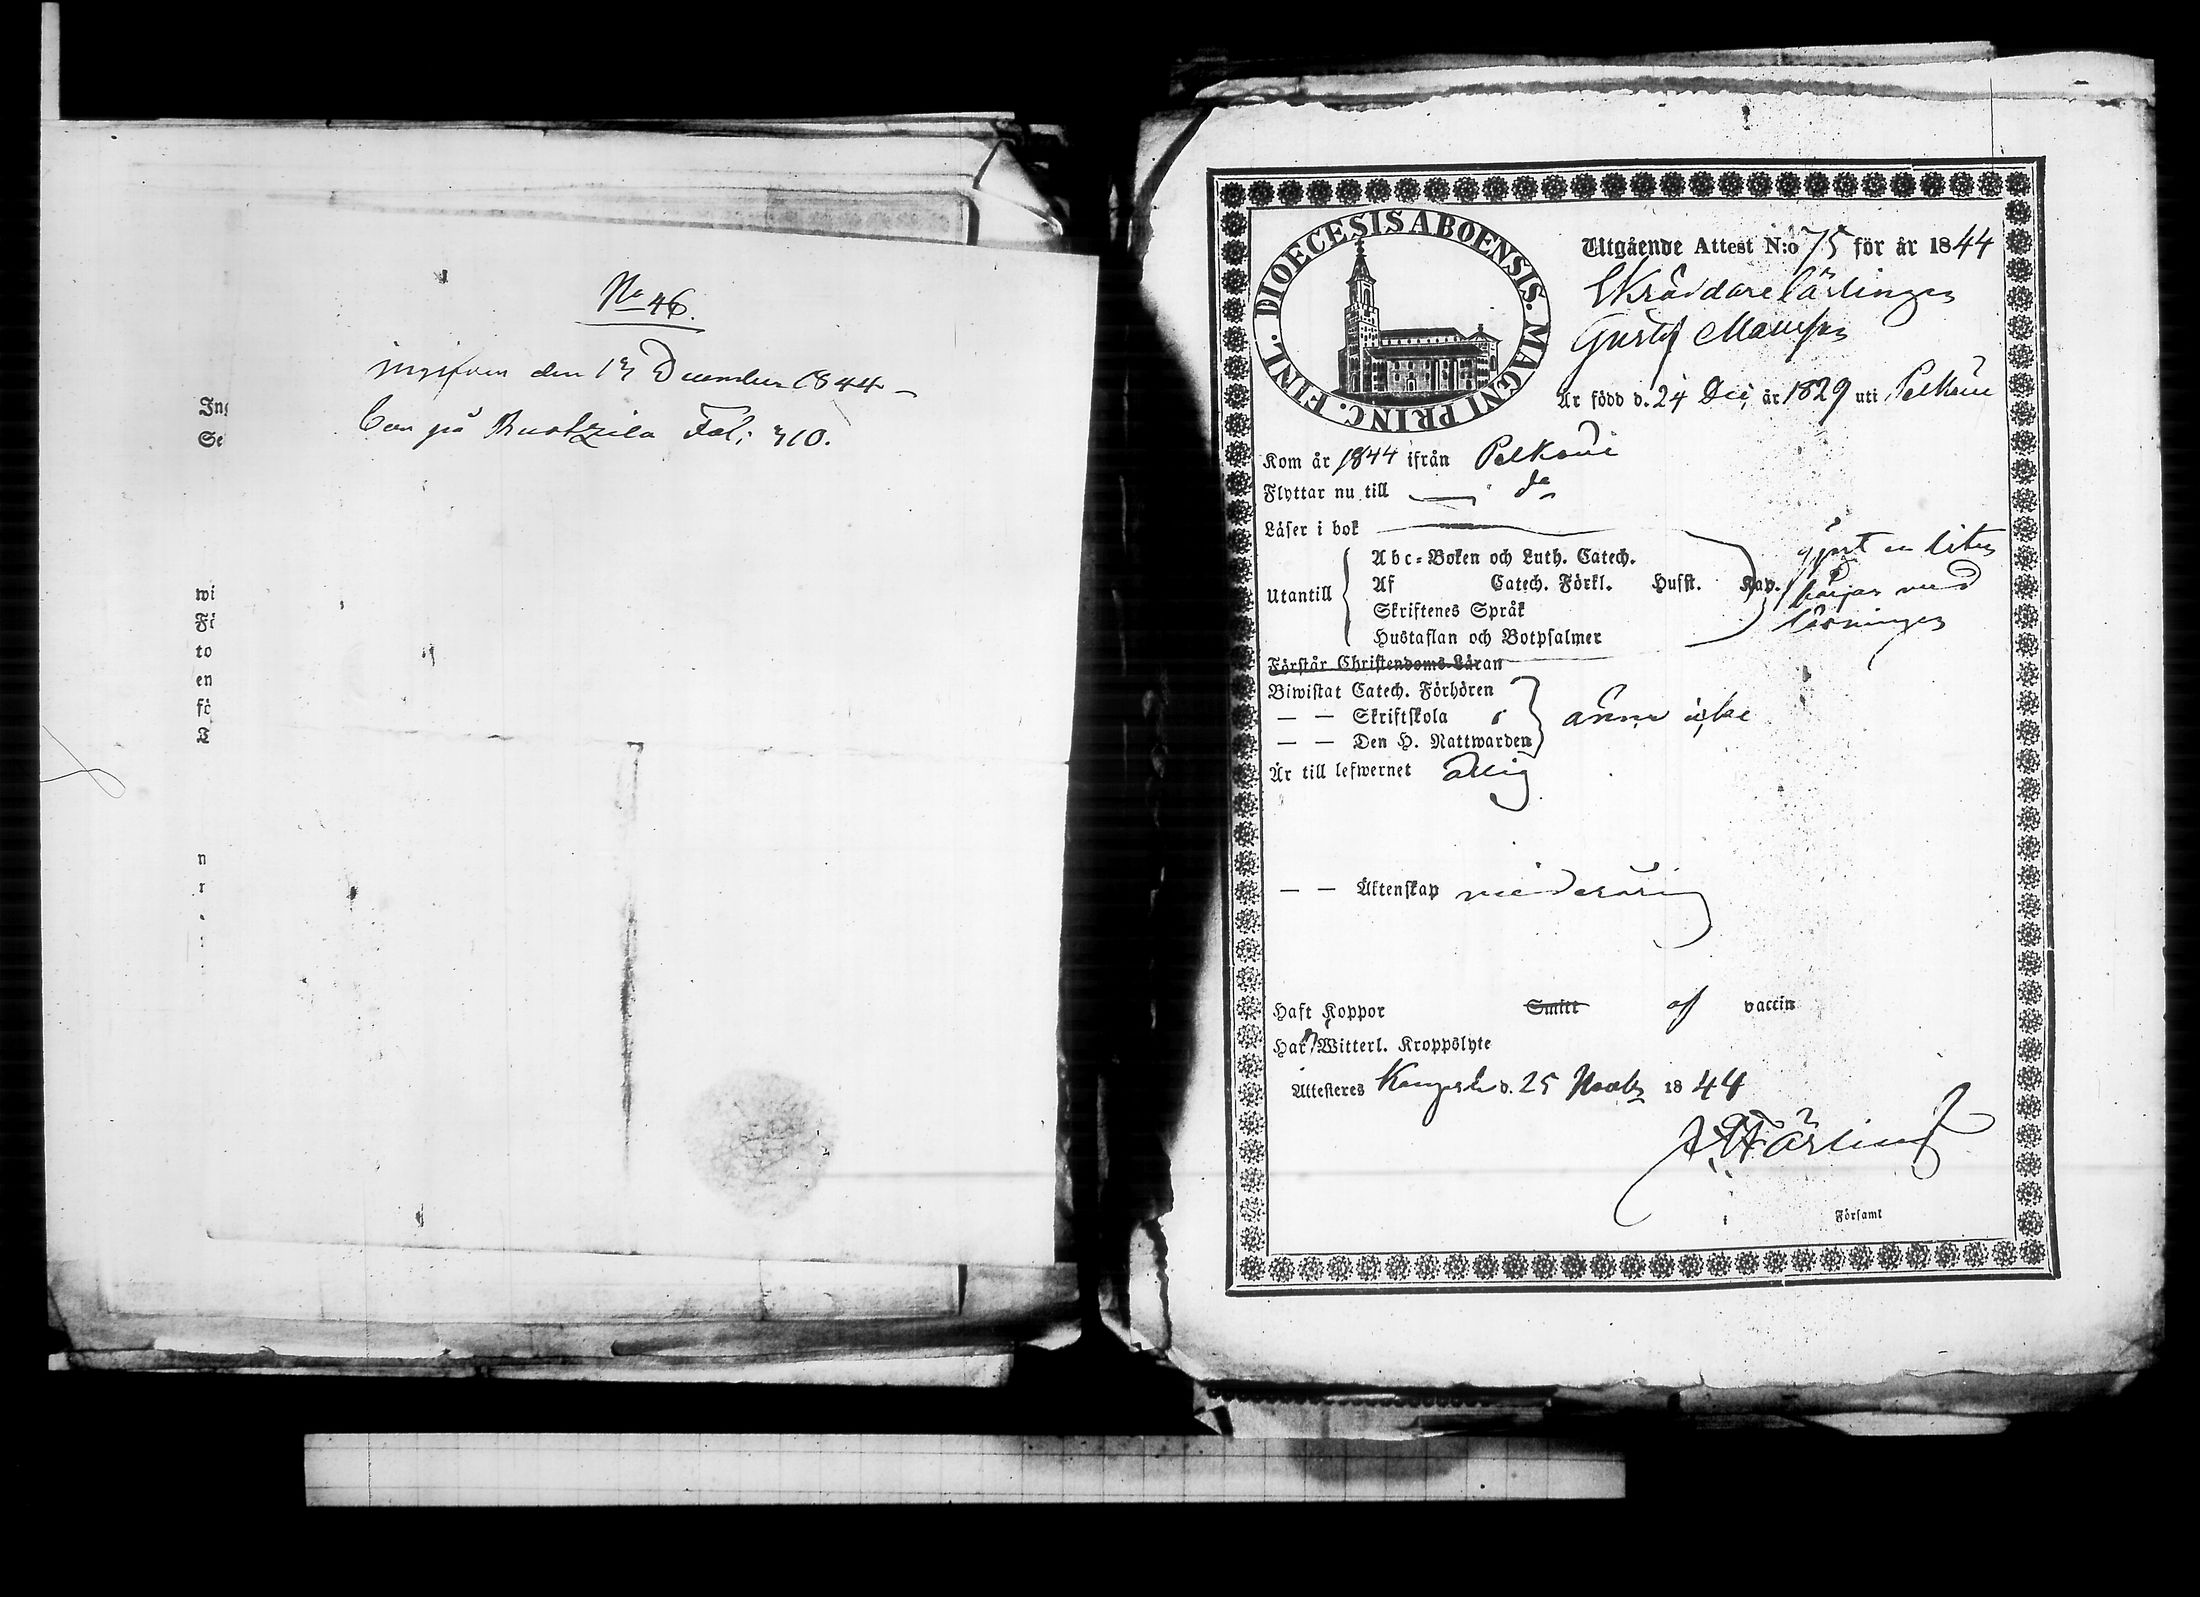 No 46.
den 13 December 1844 –
på Fol: 310.
Ing
Se
wi
Fi
to
en
fö
T
n
r
DIOECESIS ABOENSIS. MAGNI PRINC. FINL.
Utgående Attest N:o 75 för år 1844
Skräddare Lärlingen
Gustaf
Är född d. 24 Dec. år 1829 uti Pelkäne
Kom år 1844 ifrån Pelkäne
Flyttar nu till — do
Läser i bok
gjort en liten
Abc-Boken och Luth. Catech.
Utantill Af Catech. Förkl. Hufst. Kap. början med
Skriftenes Språk läsningen
Hustaflan och Botpsalmer
Förstår Christendoms-Läran
Biwistat Catech. Förhören
— — Skriftskola ännu icke
— — Den H. Nattwarden
Är till lefwernet
— — Äktenskap minderårig
Haft Koppor Smitt af vaccin
Har Witterl. Kroppslyte
Attesteras d. 25 Novemb. 1844
i Församl